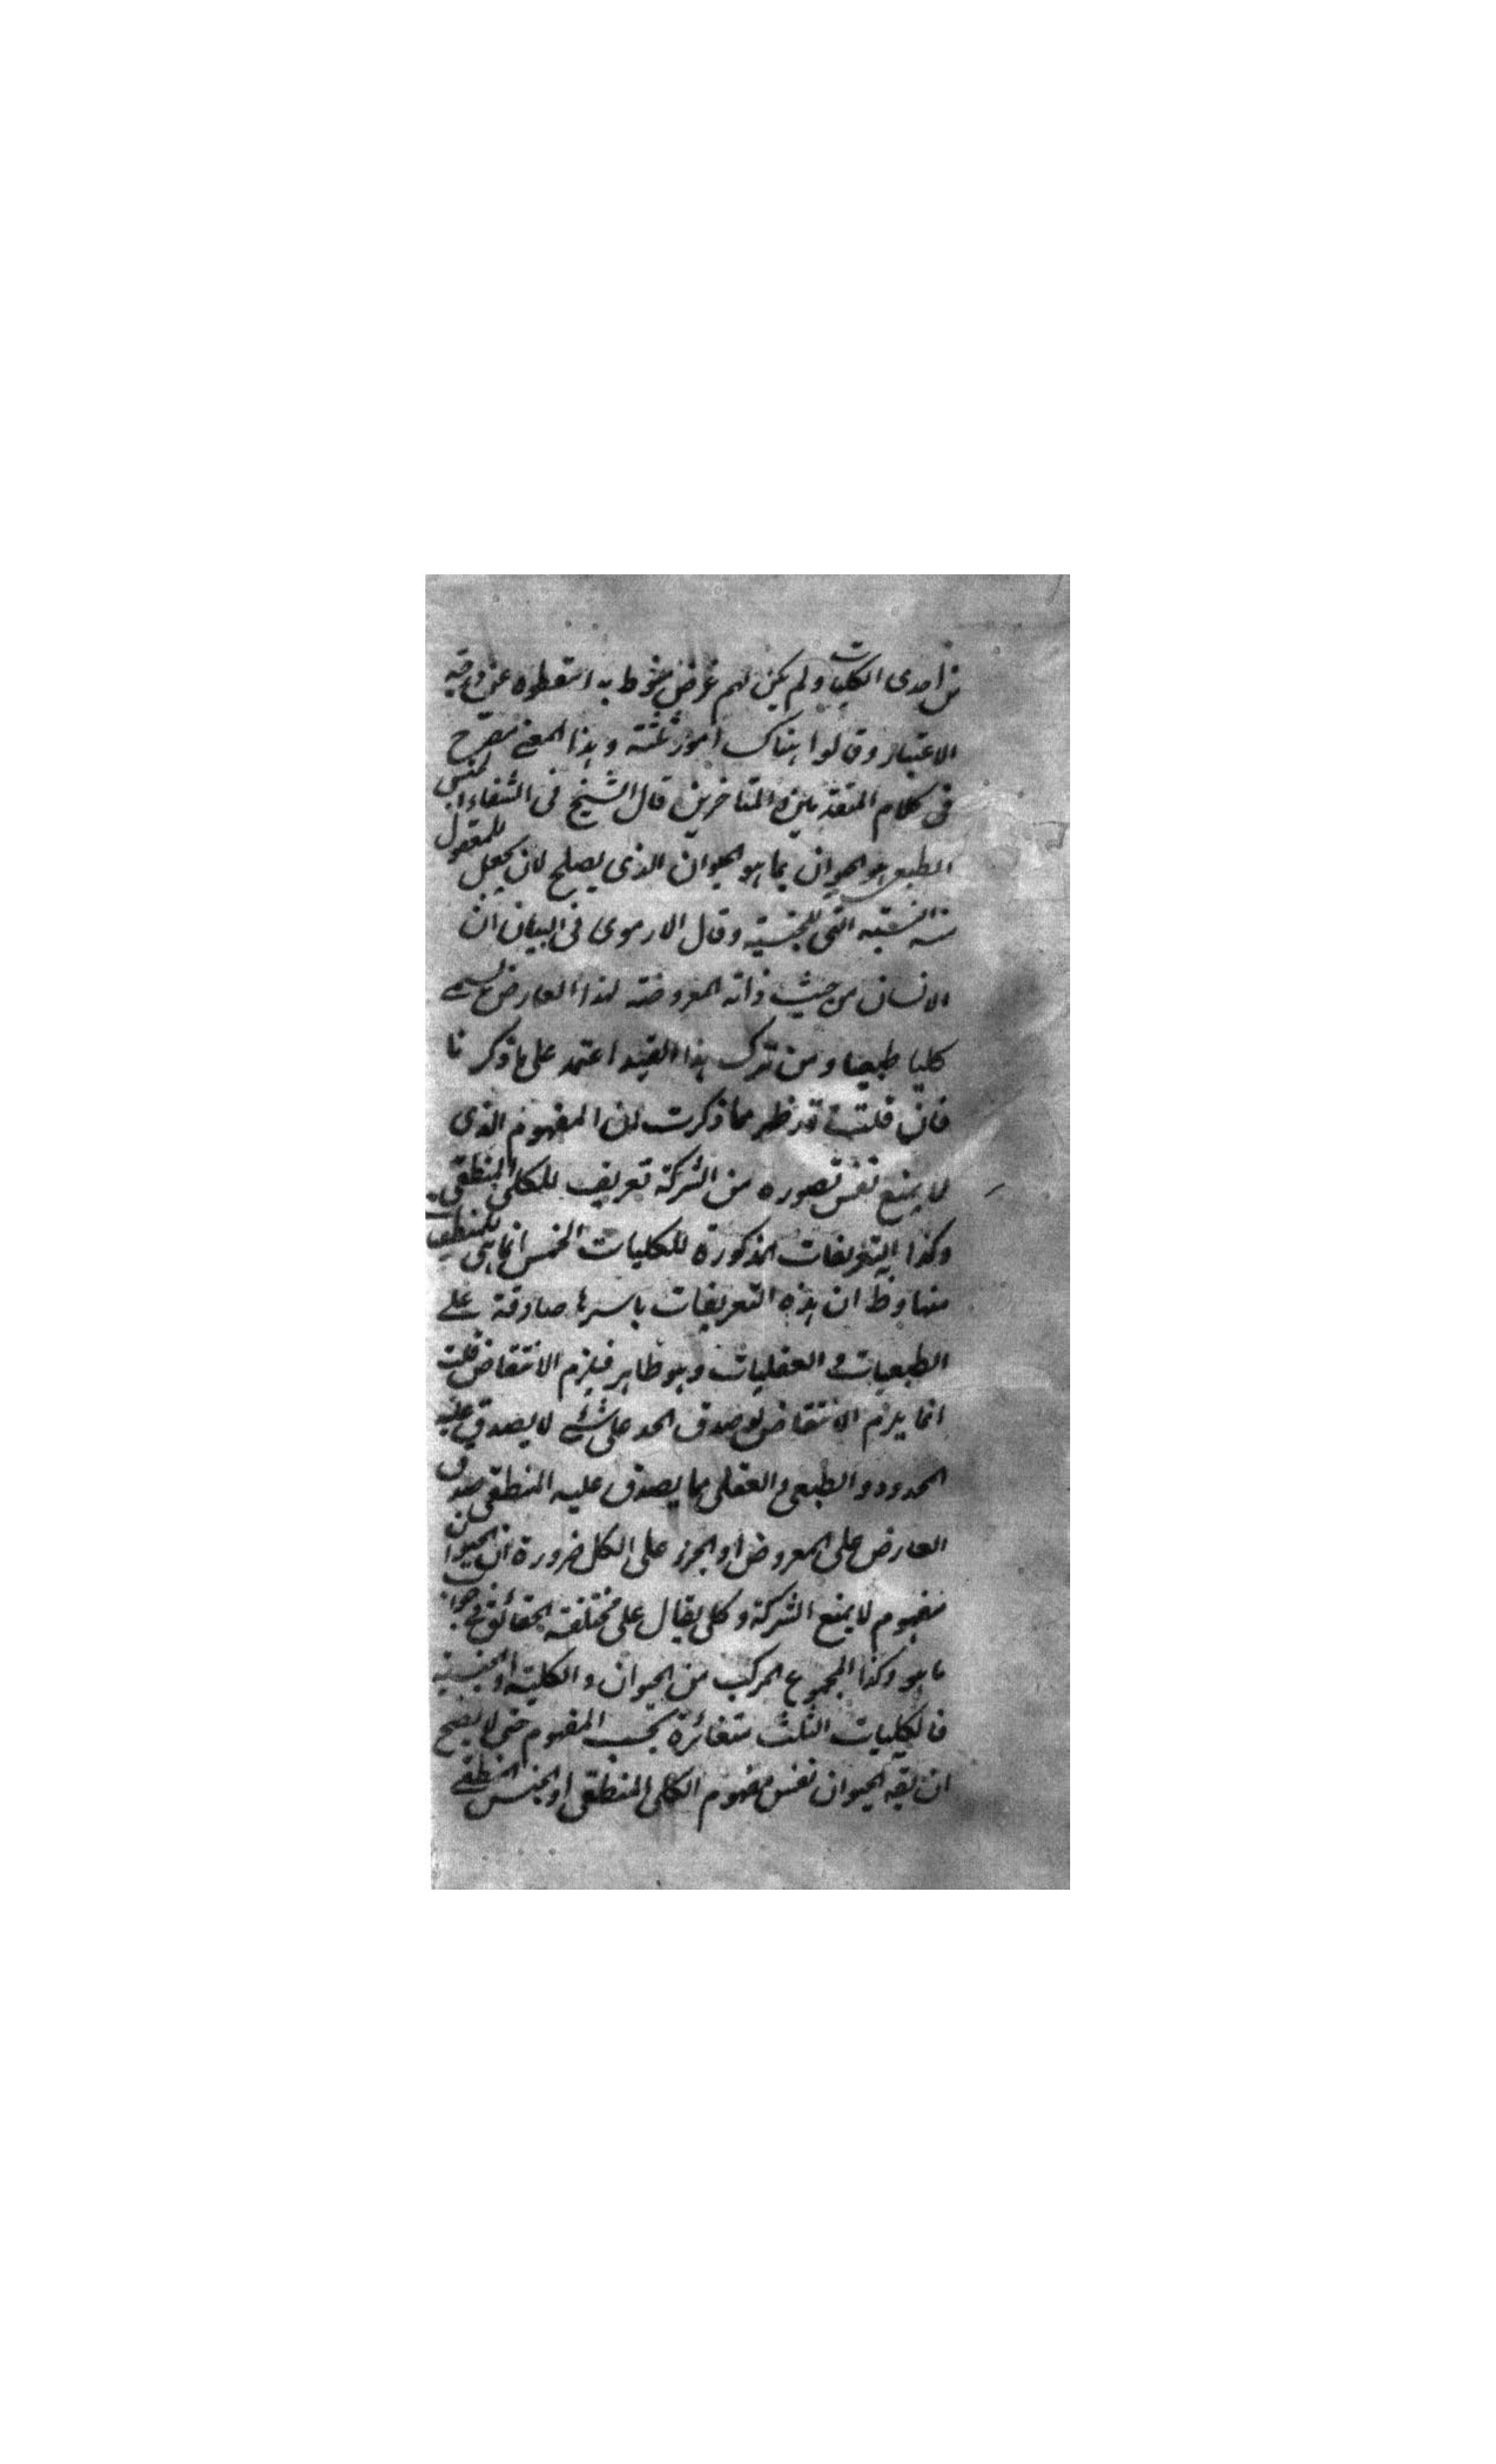 من احدى الكليات ولم يكن لهم غرض منوط به اسقطوه عن درجة
الاعتبار وقالوا هناك امور ثلثة وهذا المعنى مصرح
فى كلام المتقدمين والمتاخرين قال الشيخ فى الشفاء الجنس
الطبعى هو الحيوان بما هو الحيوان الذى يصلح لان يجعل للمعقول
منه النسبة التى للجنسية وقال الارموى فى البيان ان
الانسان من حيث ذاته المعروضة لهذا العارض يسمى
كليا طبيعيا ومن ترك هذا القيد اعتمد على ما ذكرنا
فان قلت قد ظهر مما ذكرت ان المفهوم الذى
لا يمنع نفس تصوره من الشركة تعريف للكلى المنطقى
وكذا التعريفات المذكورة للكليات الخمس انما هى للمنطقيات
منها وظ ان هذه التعريفات باسرها صادقة على
الطبعيات والعقليات وهو ظاهر فيلزم الانتقاض قلت
انما يلزم الانتقاض لو صدق الحد على شئ لا يصدق عليه
المحدود والطبعى والعقلى مما يصدق عليه المنطقى صدق
العارض على المعروض او الجزء على الكل ضرورة ان الحيوان
مفهوم لا يمنع الشركة وكلى يقال على مختلفة الحقائق فى جواب
ما هو وكذا المجموع المركب من الحيوان والكلية والجنسية
فالكليات الثلث متغائرة بحسب المفهوم حتى لا يصح
ان يقه الحيوان نفس مفهوم الكلى المنطقى او الجنس المنطقى